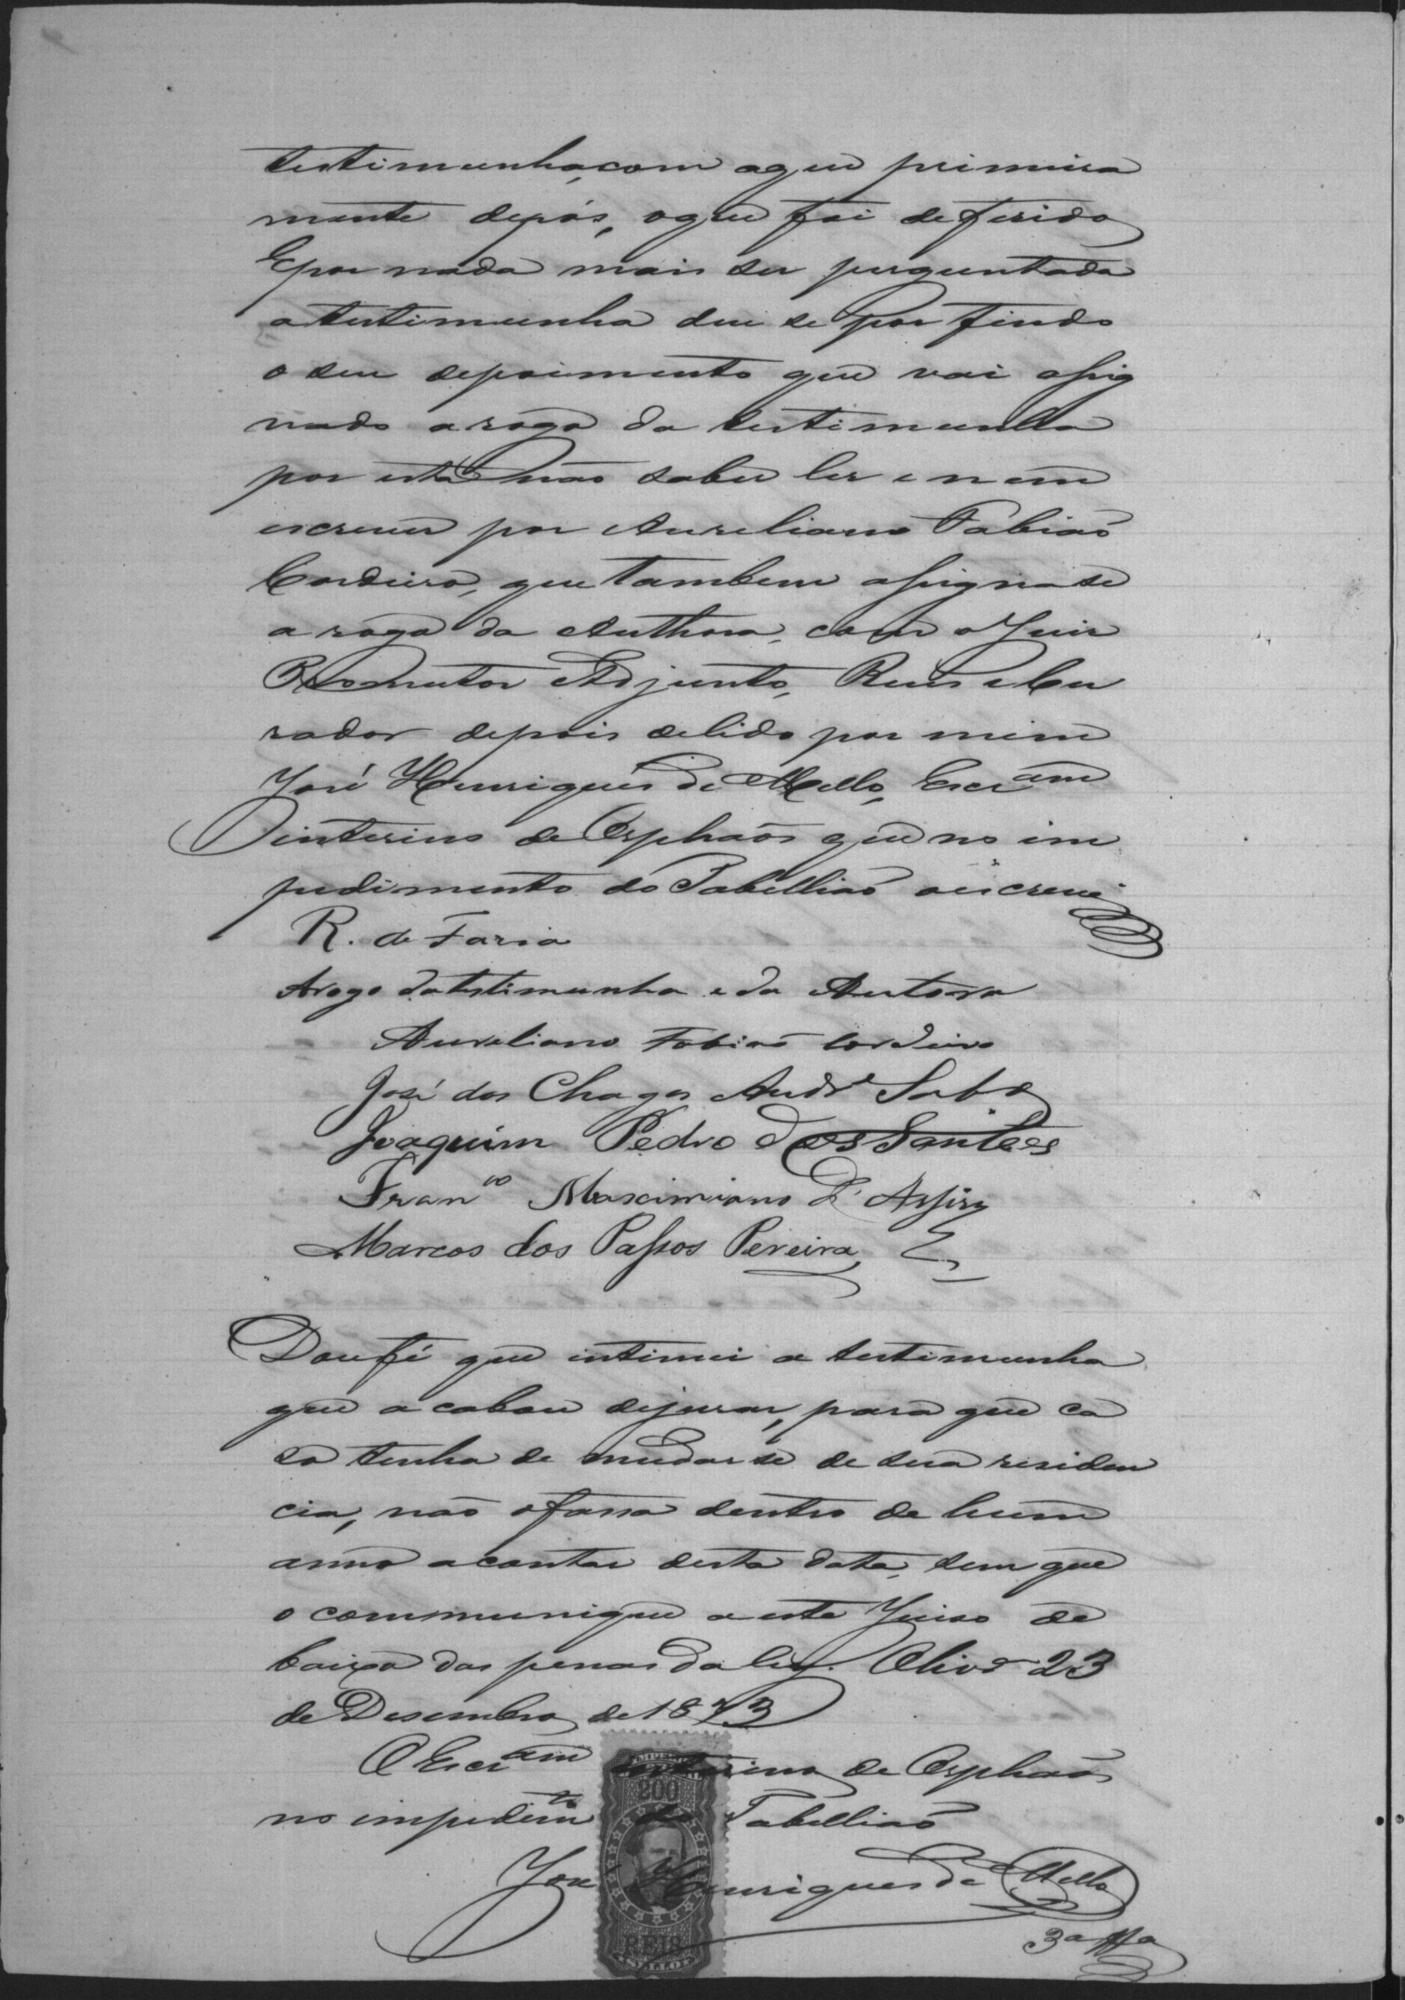 testimunha, com aque primeira
mente depós, oque foi deferido
E por nada mais ser perguntada
a testimunha deu se por findo
o seu depoimento que vai assig
nado a rogo da testimunha
por esta não saber ler e nem
escrever por Aureliano Fabião
Cordeiro, que tambem assigna se
a rogo da Authora, com o Juiz
Promutor Adjunto, Reus e Cu
rador depois de lido por mim
José Henriques de Mello, Escram
interino de Orphaõs que no im
pedimento do Tabellião o escrevi
R. de Faria
Arogo da testimunha e da Autora
Aureliano Fabião Cordeiro
José das Chagas Andre Lobo
Joaquim Pedro dos Santos
Franco Maximiano d'Assis
Marcos dos Passos Pereira
Dou fé que intimei a testimunha
que acabou dejurar, para que ca
so tenha de mudar se de sua residen
cia, não ofassa dentro de hum
anno acontar desta data, sem que
o communique a este Juiso de
baixo das penas da ley. Olivª 23
de Desembro de 1873
O Escram interino de Orphaõs
no impedimto do Tabellião
José Henriques de Mello
200
REIS
SELLO
3ª